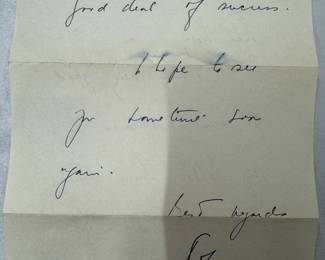 good deal of success.
I hope to see
you sometime soon
again.
best regards